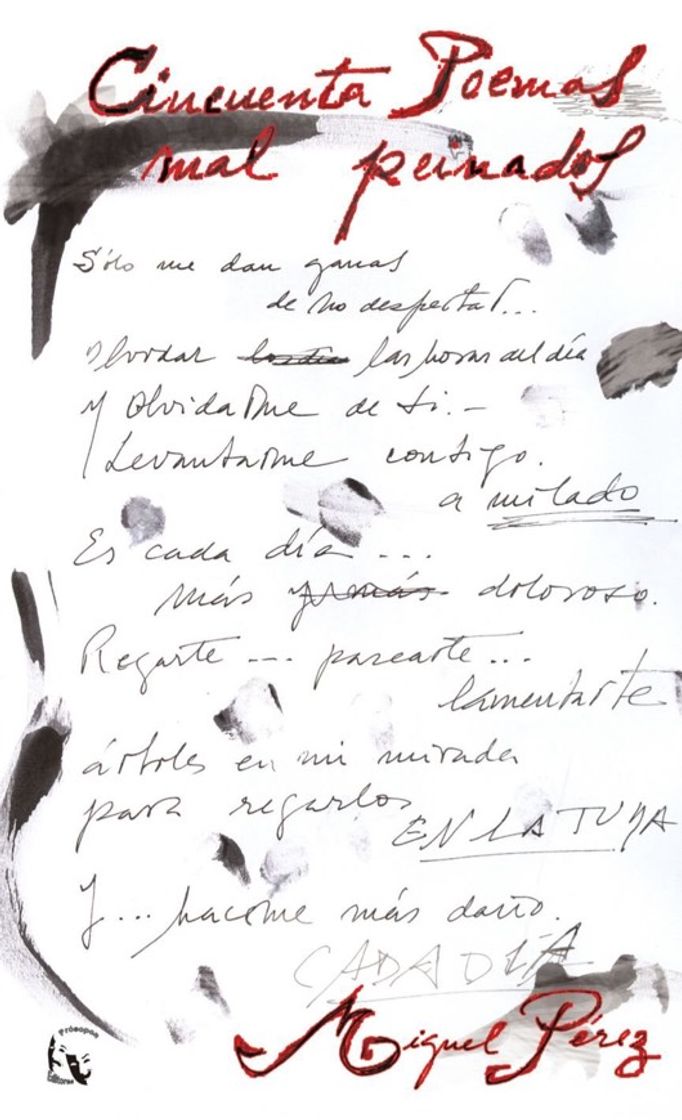 Cincuenta Poemas
mal peinados
Sólo me dan ganas
de no despertar...
olvidar las horas del día
y olvidarme de ti.-
Levantarme contigo.
a mi lado
Es cada día ...
más y más doloroso.
Regarte ... pasearte...
lamentarte
árboles en mi mirada
para regarlos
EN LA TUYA
Y... hacerme más daño.
CADA DÍA
Miguel Pérez
Prósopon
Editores